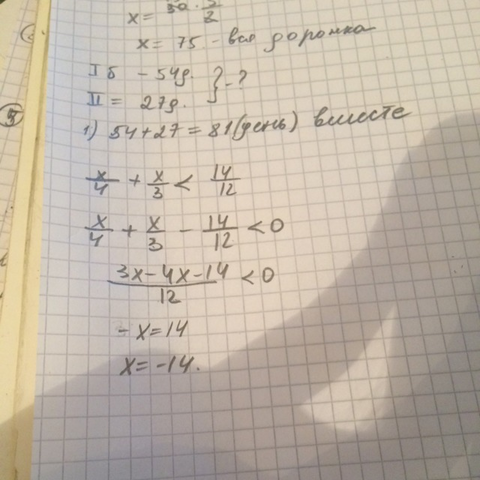 x = 30 · 5/2
x = 75 - вся дорожка
I б - 54д. } - ?
II = 27д.
5
1) 54 + 27 = 81 (день) вместе
x/4 + x/3 < 14/12
x/4 + x/3 - 14/12 < 0
3x - 4x - 14/12 < 0
- x = 14
x = -14.